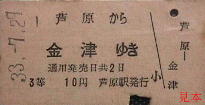 33.-7.27
芦原から
金津ゆき
通用発売日共2日
3等 10円 芦原駅発行
小
芦原
金津
見本